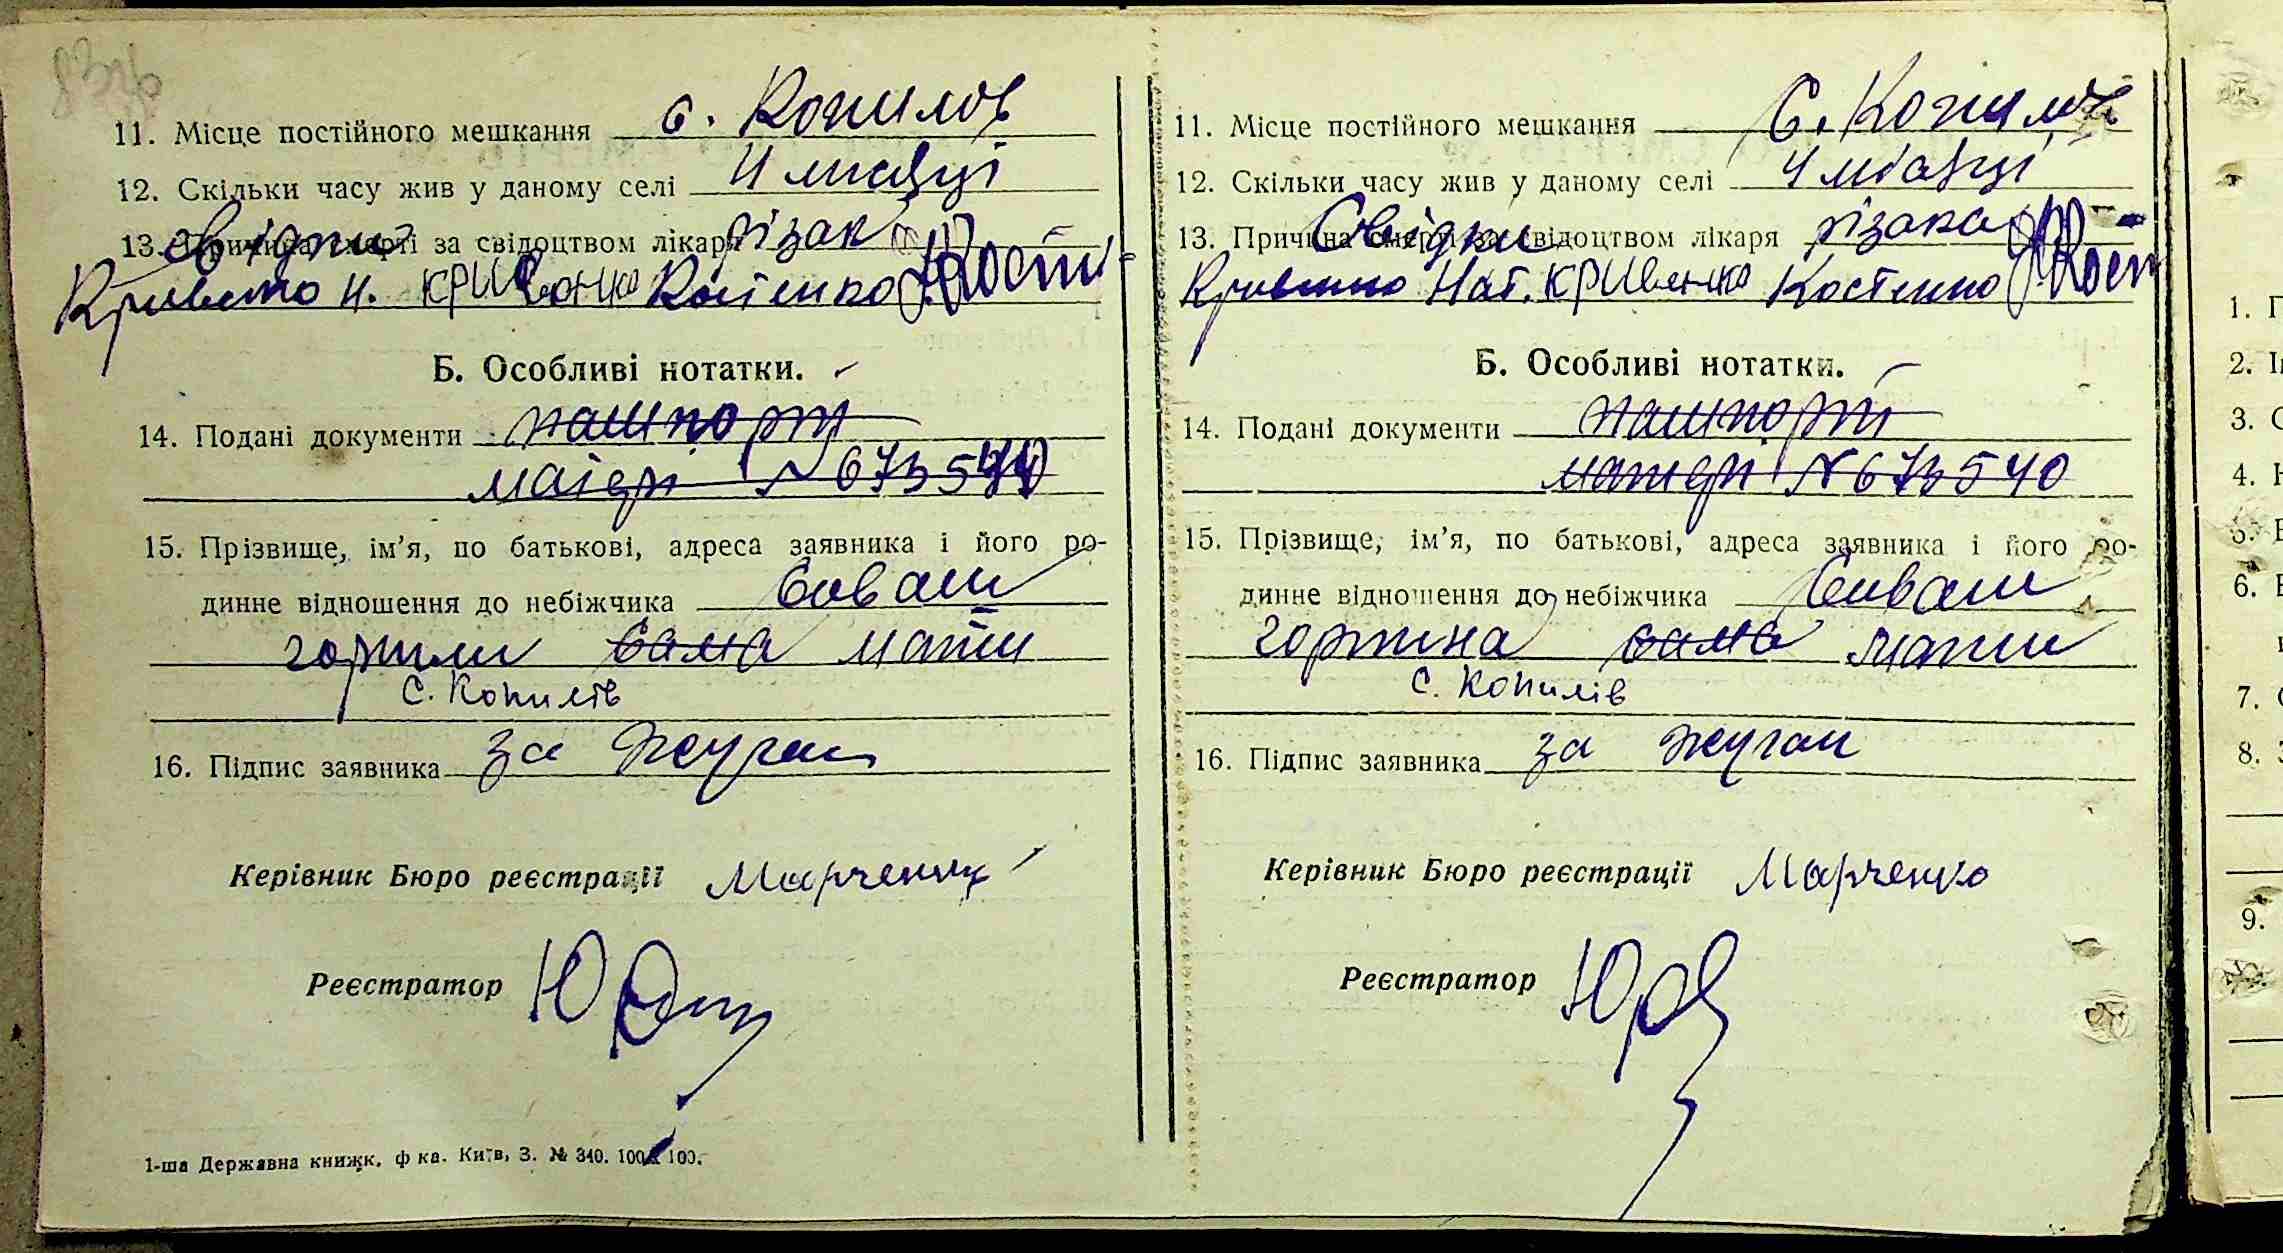 11. Місце постійного мешкання с. Копилов
12. Скільки часу жив у даному селі 4 місяці
13. Причина смерті за свідоцтвом лікаря різак
свідки
Кривенко Н. КРИВЕНКО Костенко Кост
Б. Особливі нотатки.
14. Подані документи пашпорт
матері № 673540
15. Прізвище, ім'я, по батькові, адреса заявника і його ро-
динне відношення до небіжчика Сиваш
горпина сама мати
с. Копилів
16. Підпис заявника за
Керівник Бюро реєстрації Марченко
Реєстратор
1-ша Державна книжк. ф-ка. Київ, З. № 340. 100 100.
11. Місце постійного мешкання С. Копилов
12. Скільки часу жив у даному селі 4 місяці
13. Причина смерті за свідоцтвом лікаря різака
Свідки
Кривенко Нат. КРИВЕНКО Костенко Кост
Б. Особливі нотатки.
14. Подані документи пашпорт
матері № 673540
15. Прізвище, ім'я, по батькові, адреса заявника і його ро-
динне відношення до небіжчика Сиваш
горпина сама мати
с. Копилів
16. Підпис заявника за
Керівник Бюро реєстрації Марченко
Реєстратор
1.
2.
3.
4.
5.
6.
7.
8.
9.